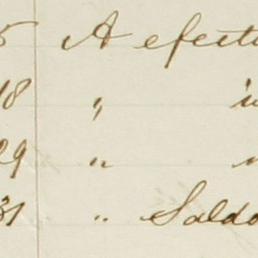 5 A efectu
18 " "
29 " "
31 " Saldo